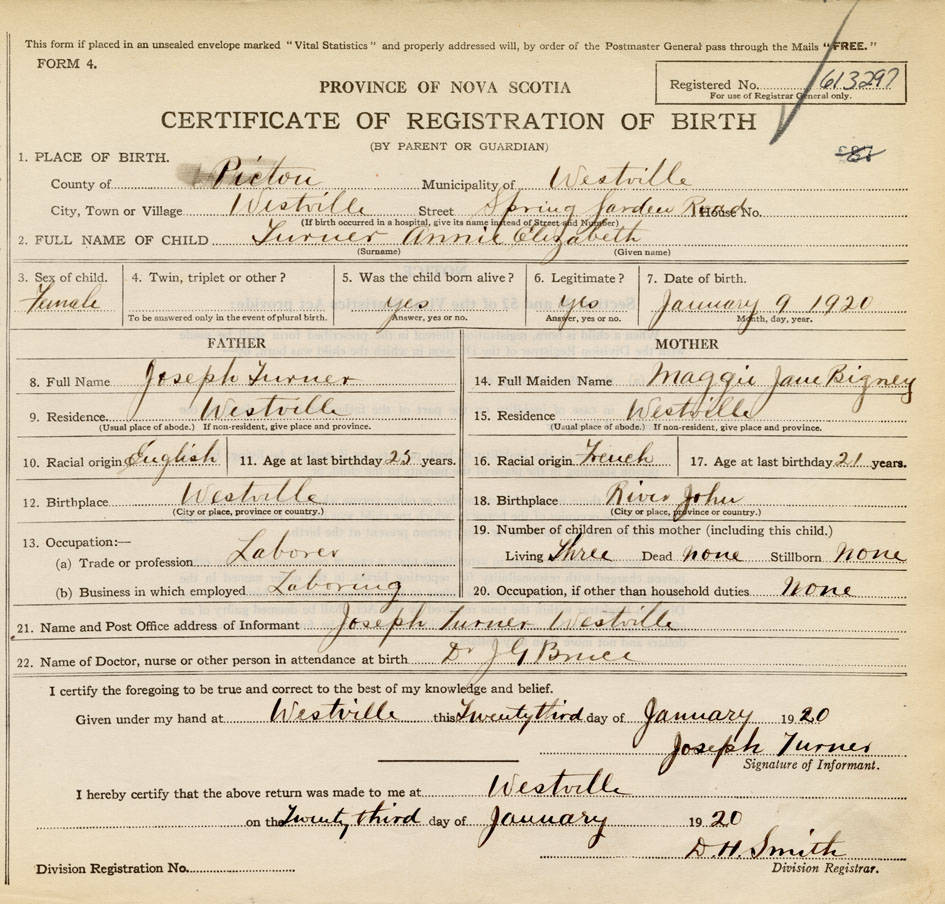 This form if placed in an unsealed envelope marked "Vital Statistics" and properly addressed will, by order of the Postmaster General pass through the Mails "FREE."
FORM 4.
Registered No. 613297
For use of Registrar General only.
PROVINCE OF NOVA SCOTIA
CERTIFICATE OF REGISTRATION OF BIRTH
(BY PARENT OR GUARDIAN)
1. PLACE OF BIRTH.
County of Pictou Municipality of Westville
City, Town or Village Westville Street Spring Garden Road House No.
(If birth occurred in a hospital, give its name instead of Street and Number)
2. FULL NAME OF CHILD Turner Annie Elizabeth
(Surname) (Given name)
3. Sex of child. 4. Twin, triplet or other? 5. Was the child born alive? 6. Legitimate? 7. Date of birth.
Female yes yes January 9 1920
To be answered only in the event of plural birth. Answer, yes or no. Answer, yes or no. Month, day, year.
FATHER MOTHER
8. Full Name Joseph Turner 14. Full Maiden Name Maggie Jane Bigney
9. Residence Westville 15. Residence Westville
(Usual place of abode.) If non-resident, give place and province. (Usual place of abode.) If non-resident, give place and province.
10. Racial origin English 11. Age at last birthday 25 years. 16. Racial origin French 17. Age at last birthday 21 years.
12. Birthplace Westville 18. Birthplace River John
(City or place, province or country.) (City or place, province or country.)
13. Occupation:— 19. Number of children of this mother (including this child.)
(a) Trade or profession Laborer Living Three Dead none Stillborn none
(b) Business in which employed Laboring 20. Occupation, if other than household duties None
21. Name and Post Office address of Informant Joseph Turner Westville
22. Name of Doctor, nurse or other person in attendance at birth Dr J G Bruce
I certify the foregoing to be true and correct to the best of my knowledge and belief.
Given under my hand at Westville this Twenty third day of January 1920
Joseph Turner
Signature of Informant.
I hereby certify that the above return was made to me at Westville
on the Twenty third day of January 1920
D. H. Smith
Division Registration No. Division Registrar.